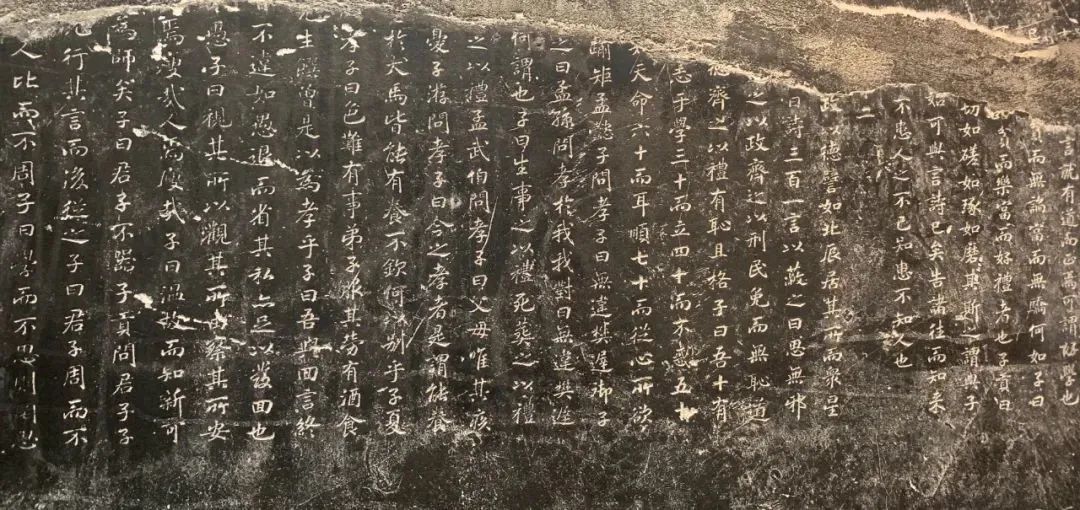 言就有道而正焉可謂好學也
而無諂富而無驕何如子曰
貧而樂富而好禮者也子貢曰
切如磋如琢如磨其斯之謂與子
如可與言詩已矣告諸往而知来
不患人之不己知患不知人也
二
以德譬如北辰居其所而衆星
曰詩三百一言以蔽之曰思無邪
之以政齊之以刑民免而無恥道
德齊之以禮有恥且格子曰吾十有
志乎學三十而立四十而不惑五十
天命六十而耳順七十而從心所欲
踰矩孟懿子問孝子曰無違樊遲御子
之曰孟孫問孝於我我對曰無違樊遲
何謂也子曰生事之以禮死葬之以禮
之以禮孟武伯問孝子曰父母唯其疾
憂子游問孝子曰今之孝者是謂能養
於犬馬皆能有養不敬何以別乎子夏
孝子曰色難有事弟子服其勞有酒食
生饌曾是以為孝乎子曰吾與回言終
不違如愚退而省其私亦足以發回也
愚子曰視其所以觀其所由察其所安
焉廋哉人焉廋哉子曰溫故而知新可
為師矣子曰君子不器子貢問君子子
先行其言而後從之子曰君子周而不
人比而不周子曰學而不思則罔思